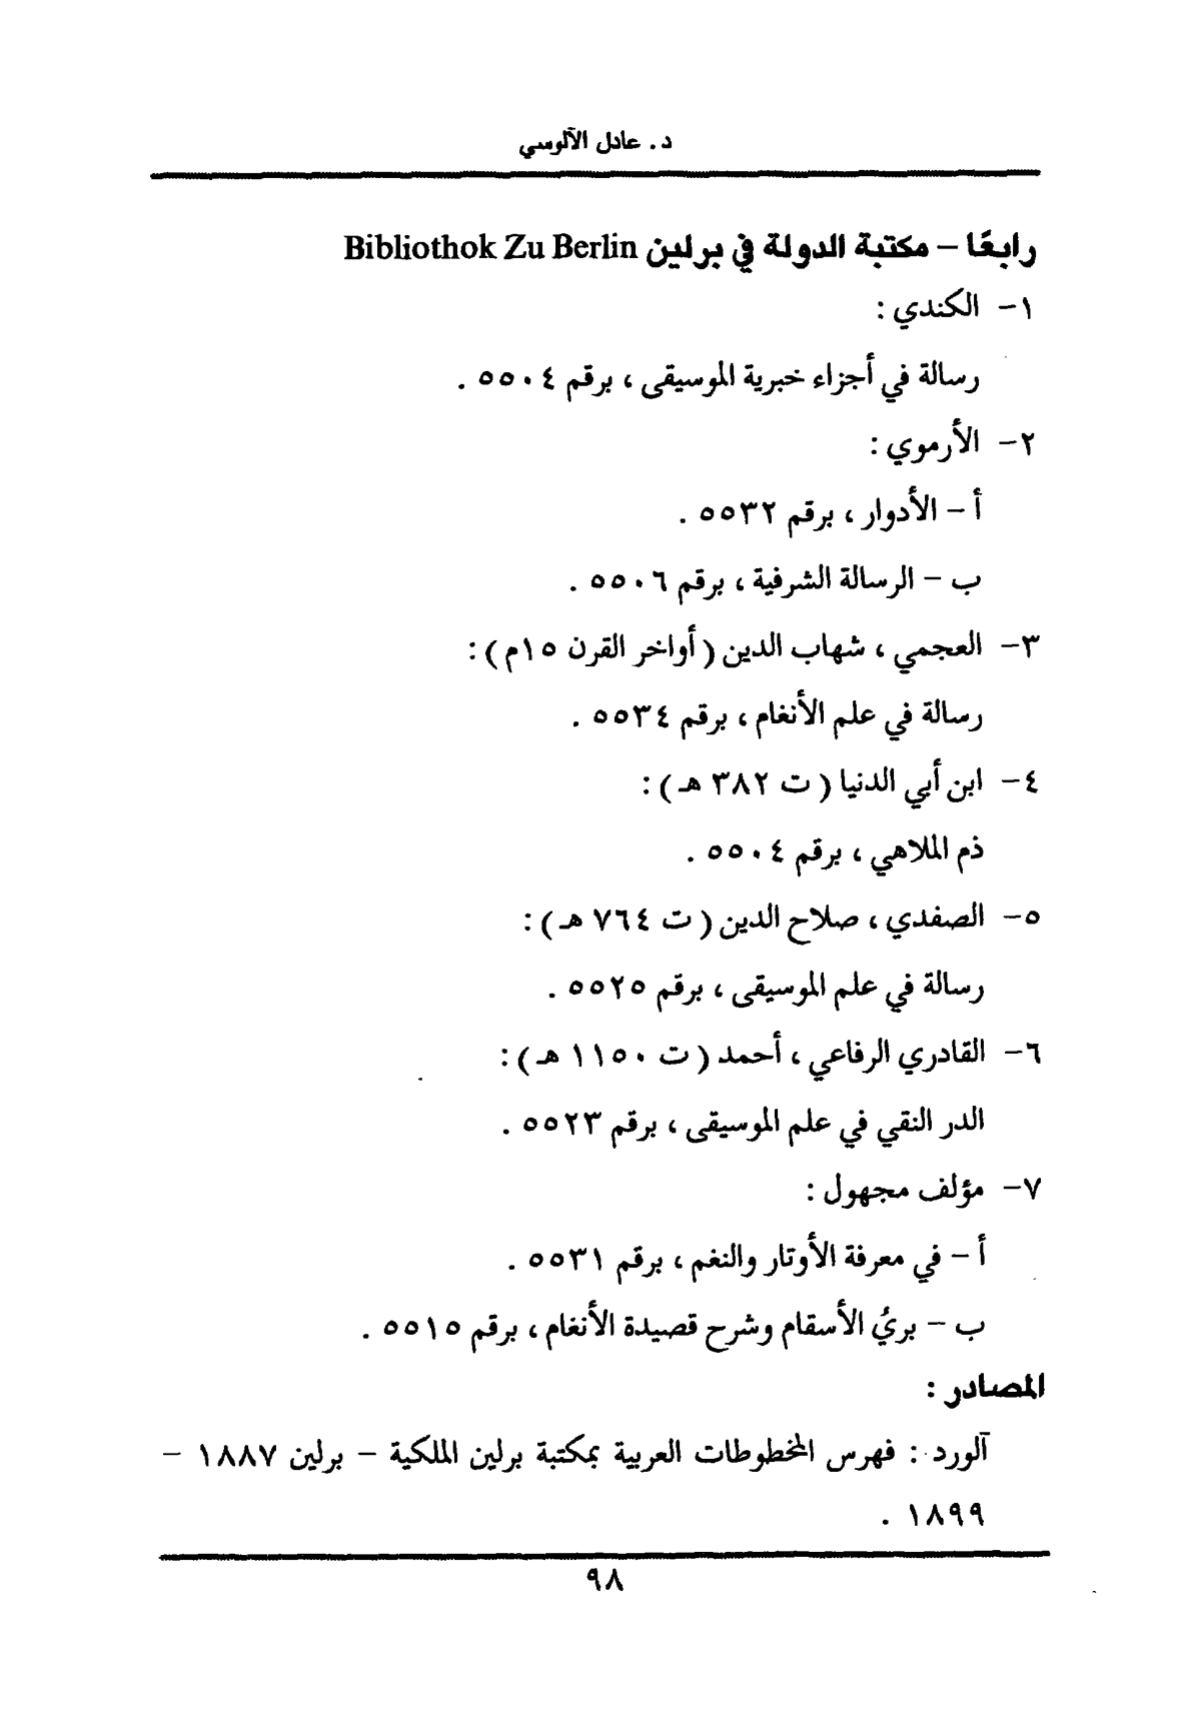 د. عادل الآلوسي
رابعًا – مكتبة الدولة في برلين Bibliothok Zu Berlin
١– الكندي :
رسالة في أجزاء خبرية الموسيقى ، برقم ٥٥٠٤ .
٢– الأرموي :
أ – الأدوار ، برقم ٥٥٣٢ .
ب – الرسالة الشرفية ، برقم ٥٥٠٦ .
٣– العجمي ، شهاب الدين ( أواخر القرن ١٥م ) :
رسالة في علم الأنغام ، برقم ٥٥٣٤ .
٤– ابن أبي الدنيا ( ت ٣٨٢ هـ ) :
ذم الملاهي ، برقم ٥٥٠٤ .
٥– الصفدي ، صلاح الدين ( ت ٧٦٤ هـ ) :
رسالة في علم الموسيقى ، برقم ٥٥٢٥ .
٦– القادري الرفاعي ، أحمد ( ت ١١٥٠ هـ ) :
الدر النقي في علم الموسيقى ، برقم ٥٥٢٣ .
٧– مؤلف مجهول :
أ – في معرفة الأوتار والنغم ، برقم ٥٥٣١ .
ب – بريُ الأسقام وشرح قصيدة الأنغام ، برقم ٥٥١٥ .
المصادر :
آلورد : فهرس المخطوطات العربية بمكتبة برلين الملكية – برلين ١٨٨٧ –
١٨٩٩ .
٩٨